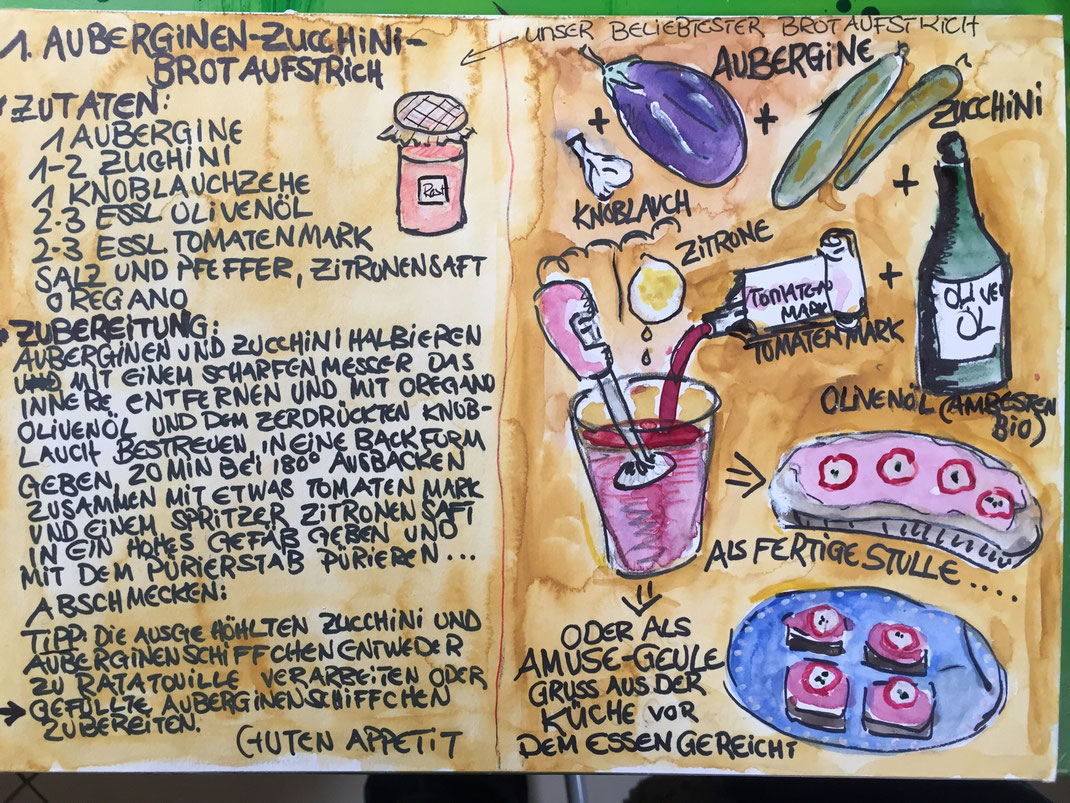 1. AUBERGINEN-ZUCCHINI-
BROTAUFSTRICH
ZUTATEN:
1 AUBERGINE
1-2 ZUCHINI
1 KNOBLAUCHZEHE
2-3 ESSL OLIVENÖL
2-3 ESSL TOMATENMARK
SALZ UND PFEFFER, ZITRONENSAFT
OREGANO
ZUBEREITUNG:
AUBERGINEN UND ZUCCHINI HALBIEREN
UND MIT EINEM SCHARFEN MESSER DAS
INNERE ENTFERNEN UND MIT OREGANO
OLIVENÖL UND DEM ZERDRÜCKTEN KNOB-
LAUCH BESTREUEN, IN EINE BACKFORM
GEBEN, 20 MIN BEI 180° AUSBACKEN
ZUSAMMEN MIT ETWAS TOMATENMARK
UND EINEM SPRITZER ZITRONENSAFT
IN EIN HOHES GEFÄß GEBEN UND
MIT DEM PÜRIERSTAB PÜRIEREN...
ABSCHMECKEN:
TIPP: DIE AUSGEHÖHLTEN ZUCCHINI UND
AUBERGINENSCHIFFCHEN ENTWEDER
ZU RATATOUILLE VERARBEITEN ODER
GEFÜLLTE AUBERGINENSCHIFFCHEN
ZUBEREITEN.
GUTEN APPETIT
UNSER BELIEBTESTER BROTAUFSTRICH
AUBERGINE
+
+
ZUCCHINI
+
KNOBLAUCH
ZITRONE
TOMATEN
MARK
+
TOMATENMARK
OLIVENÖL (AM BESTEN
BIO)
ALS FERTIGE STULLE.....
ODER ALS
AMUSE-GEULE
GRUSS AUS DER
KÜCHE VOR
DEM ESSEN GEREICHT